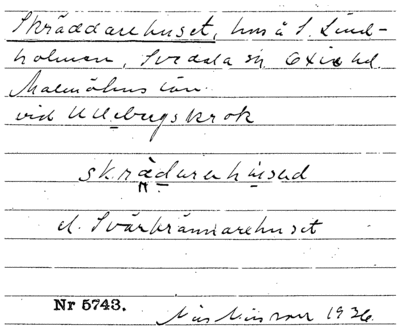 Skräddarehuset, hus å S. Lind-
holmen, Svedala sn Oxie hd.
Malmöhus län
vid Ullebergskrok
skräddarehused
el. Svärbrämarehuset
Nr 5743.
1936